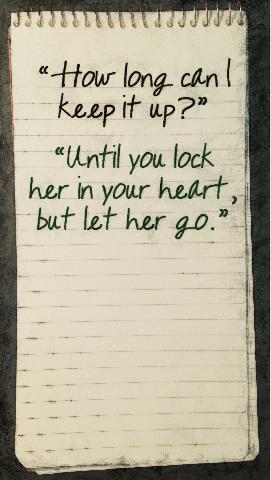 “How long can I
keep it up?”
“Until you lock
her in your heart,
but let her go.”